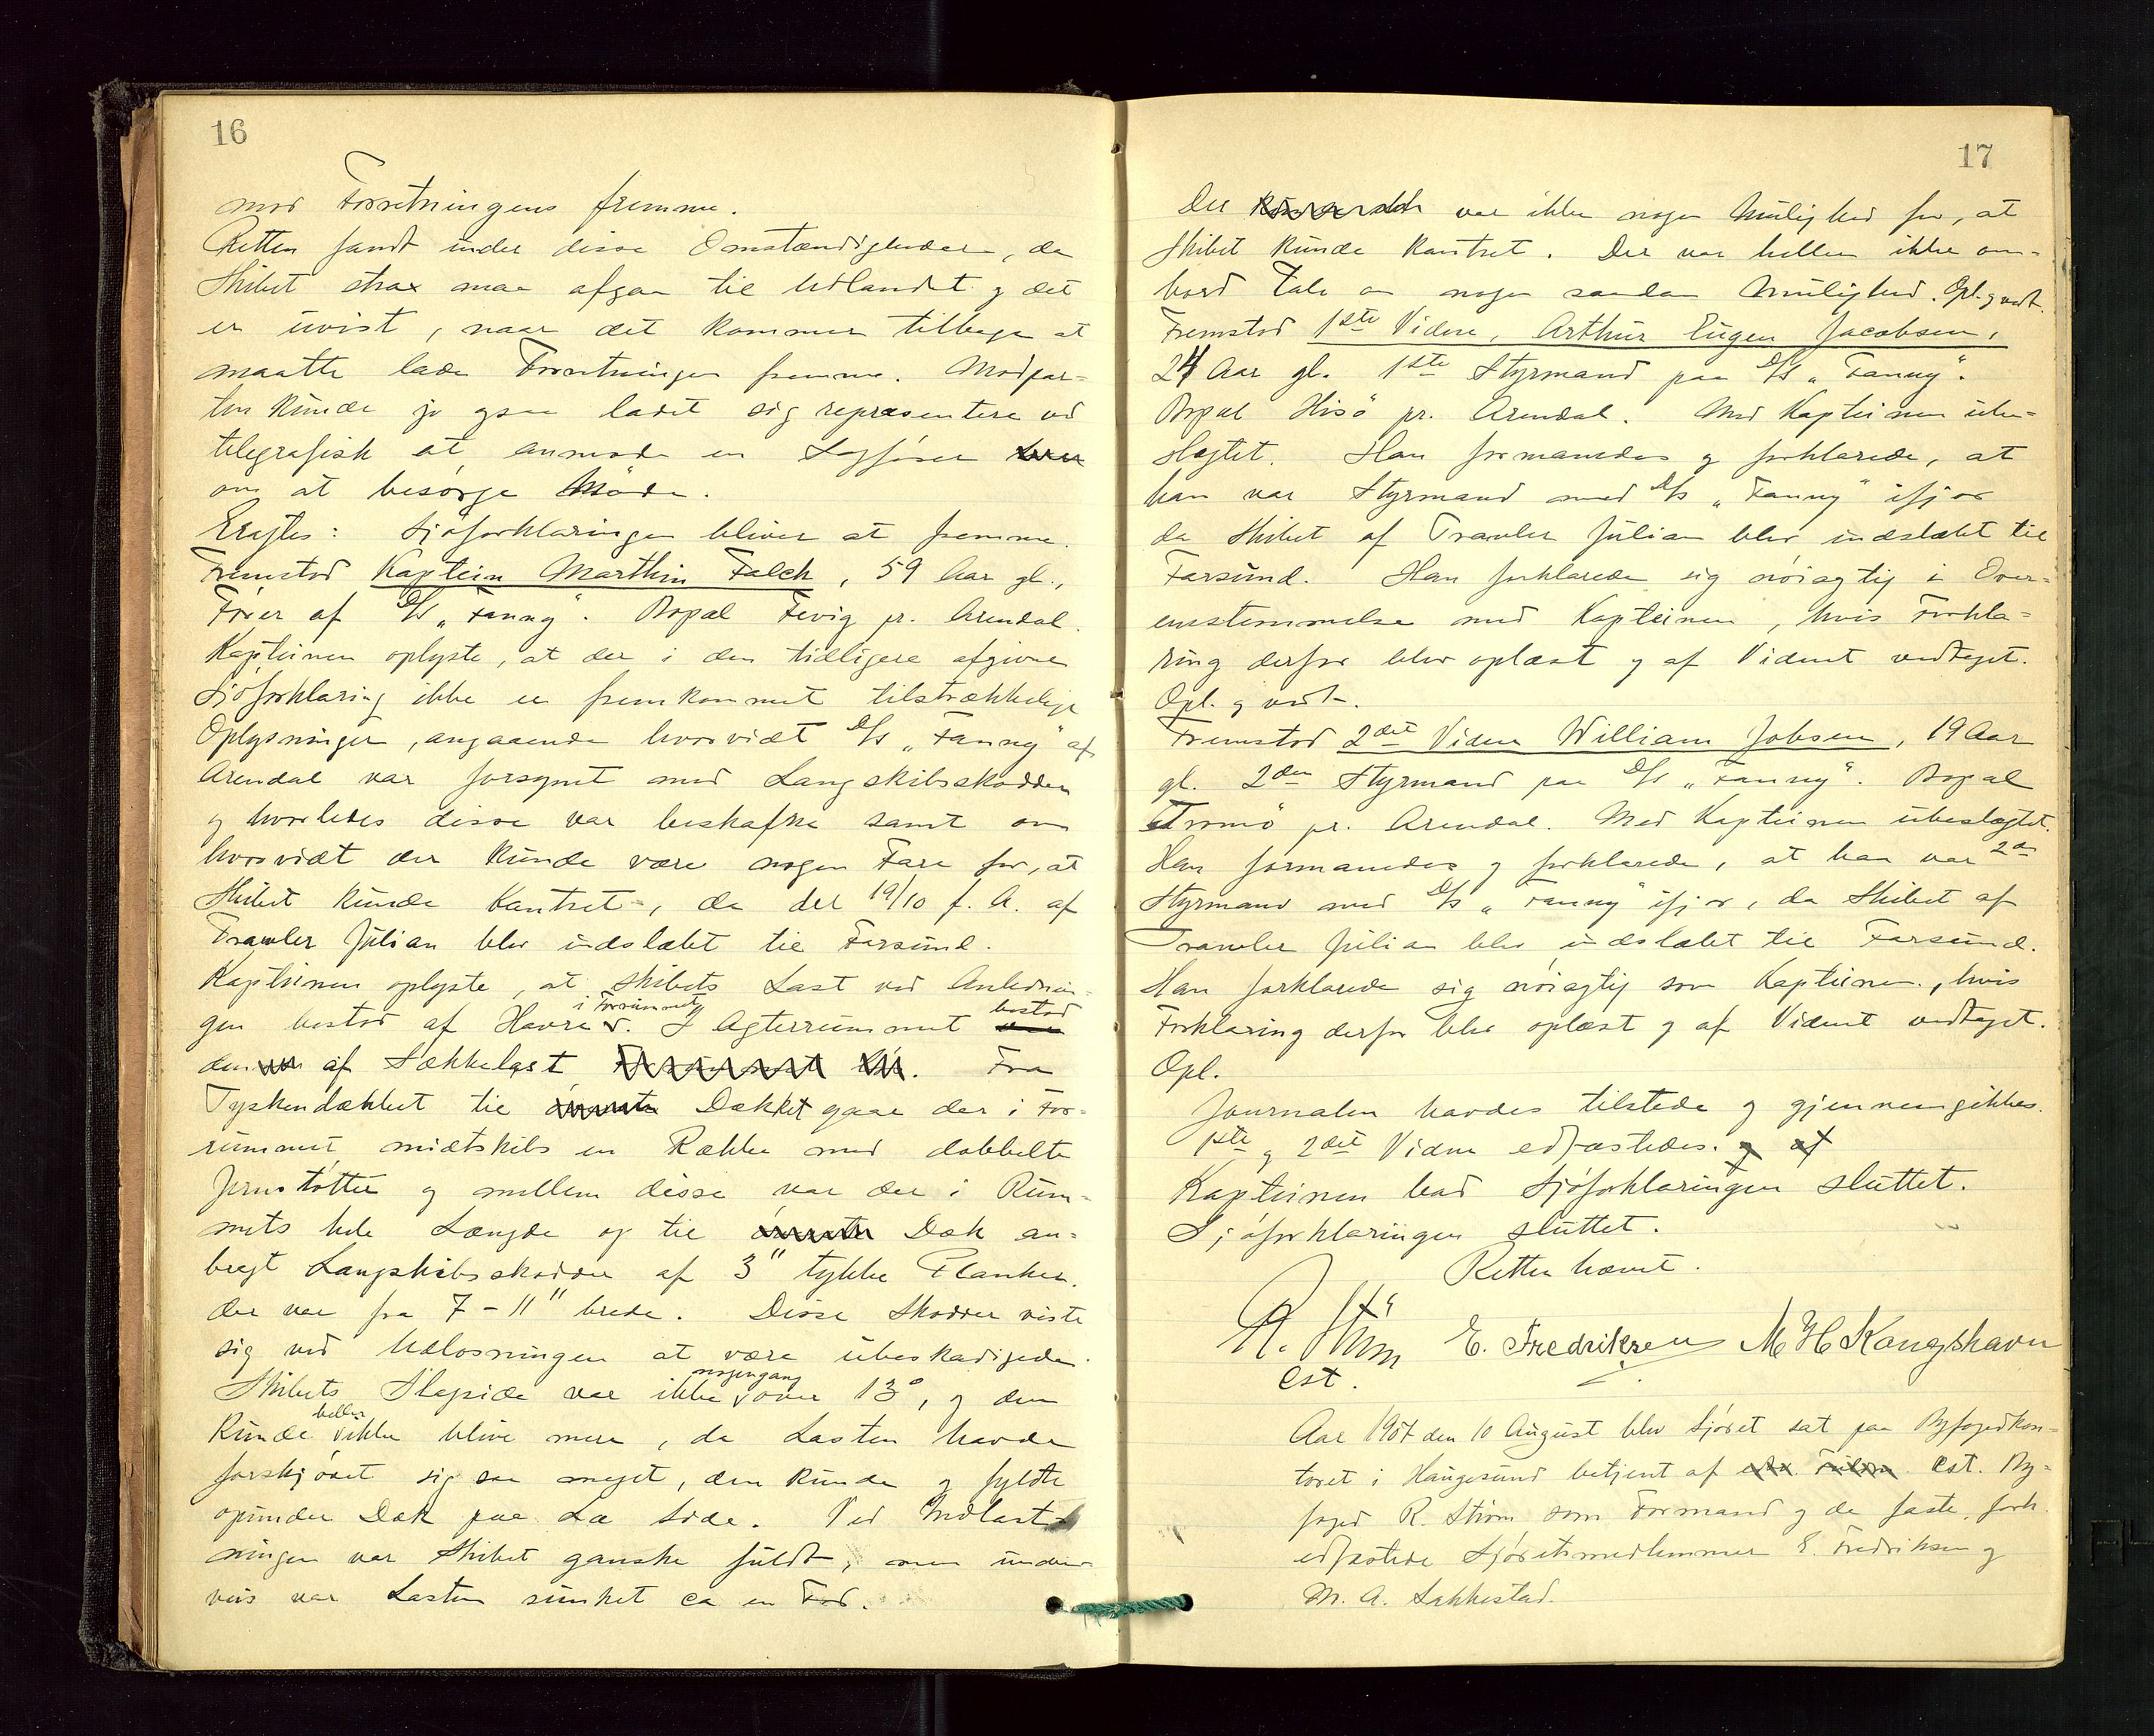 16
mod Forretningens fremme.
Retten fandt under disse Omstændigheder, da
Skibet strax maa afgaa til Udlandet og det
er uvist, naar det kommer tilbage at
maatte lade Forretningen fremme. Modpar-
ten kunde jo ogsaa ladet sig repræsentere ved
telegrafisk at anmode en Sagfører
om at besørge Møde.
Eragtes: Sjøforklaringen bliver at fremme.
Fremstod Kaptein Marthin Falch, 59 Aar gl.,
Fører af D/S „Fanny". Bopæl Fevig pr. Arendal.
Kapteinen oplyste, at der i den tidligere afgivne
Sjøforklaring ikke er fremkommet tilstrækkelige
Oplysninger, angaaende hvorvidt D/S „Fanny" af
Arendal var forsynet med Langskibsskodder
og hvorledes disse var beskafne samt om
hvorvidt der kunde være nogen Fare for, at
Skibet kunde kantret, da det 19/10 f. A. af
Trawler Julian blev indslæbt til Farsund.
Kapteinen oplyste, at Skibets Last ved Anlednin-
gen bestod af Havre i Forrummet. I Agterrummet bestod
den af Sækkelast. Fra
Tyskendækket til Dækket gaar der i For-
rummet midtskibs en Række med dobbelte
Jernstøtter og mellem disse var der i Rum-
mets hele Længde op til Dæk an-
bragt Langskibsskodder af 3" tykke Planker,
der var fra 7 - 11" brede. Disse Skodder viste
sig ved Udlosningen at være ubeskadigede.
Skibets Slagside var ikke nogengang over 13°, og den
kunde heller ikke blive mere, da Lasten havde
forskjøvet sig saa meget, den kunde og fyldte
opunder Dæk paa Læ Side. Ved Indlast-
ningen var Skibet ganske fuldt, men under-
veis var Lasten sunket ca en Fod.
17
Der var ikke nogen Mulighed for, at
Skibet kunde kantret. Der var heller ikke om-
bord Tale om nogen saadan Mulighed. Opl. og vedt.
Fremstod 1ste Vidne, Arthur Eugen Jacobsen,
24 Aar gl. 1ste Styrmand paa D/S „Fanny".
Bopæl Hisø pr. Arendal. Med Kapteinen ube-
slægtet. Han formanedes og forklarede, at
han var Styrmand med D/S „Fanny" ifjor
da Skibet af Trawler Julian blev indslæbt til
Farsund. Han forklarede sig nøiagtig i Over-
ensstemmelse med Kapteinen, hvis Forkla-
ring derfor blev oplæst og af Vidnet vedtaget.
Opl. og vedt.
Fremstod 2det Vidne William Jobsen, 19 Aar
gl. 2den Styrmand paa D/S „Fanny". Bopæl
Tromø pr. Arendal. Med Kapteinen ubeslægtet.
Han formanedes og forklarede, at han var 2den
Styrmand med D/S „Fanny" ifjor, da Skibet af
Trawler Julian blev indslæbt til Farsund.
Han forklarede sig nøiagtig som Kapteinen, hvis
Forklaring derfor blev oplæst og af Vidnet vedtaget.
Opl.
Journalen havdes tilstede og gjennemgikkes.
1ste og 2det Vidne edfæstedes.
Kapteinen bad Sjøforklaringen sluttet.
Sjøforklaringen sluttet.
Retten hævet.
R. Strøm E. Fredriksen M H Kongshavn
cst.
Aar 1907 den 10 August blev Sjøret sat paa Byfogedkon-
toret i Haugesund betjent af cst. By-
foged R. Strøm som Formand og de faste, forh.
edfæstede Sjøretsmedlemmer E. Fredriksen og
M. A. Sakkestad.